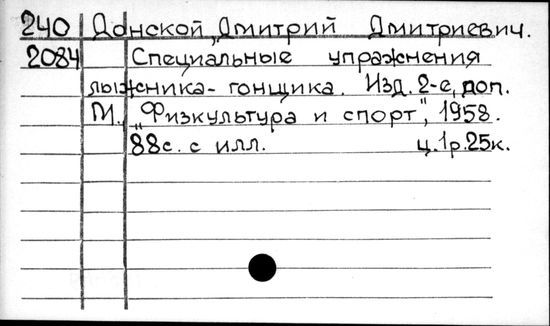 240 Донской, Дмитрий Дмитриевич.
2084 Специальные упражнения
лыжника-гонщика. Изд. 2-е, доп.
М., „Физкультура и спорт", 1958.
88с. с илл. ц. 1р. 25к.